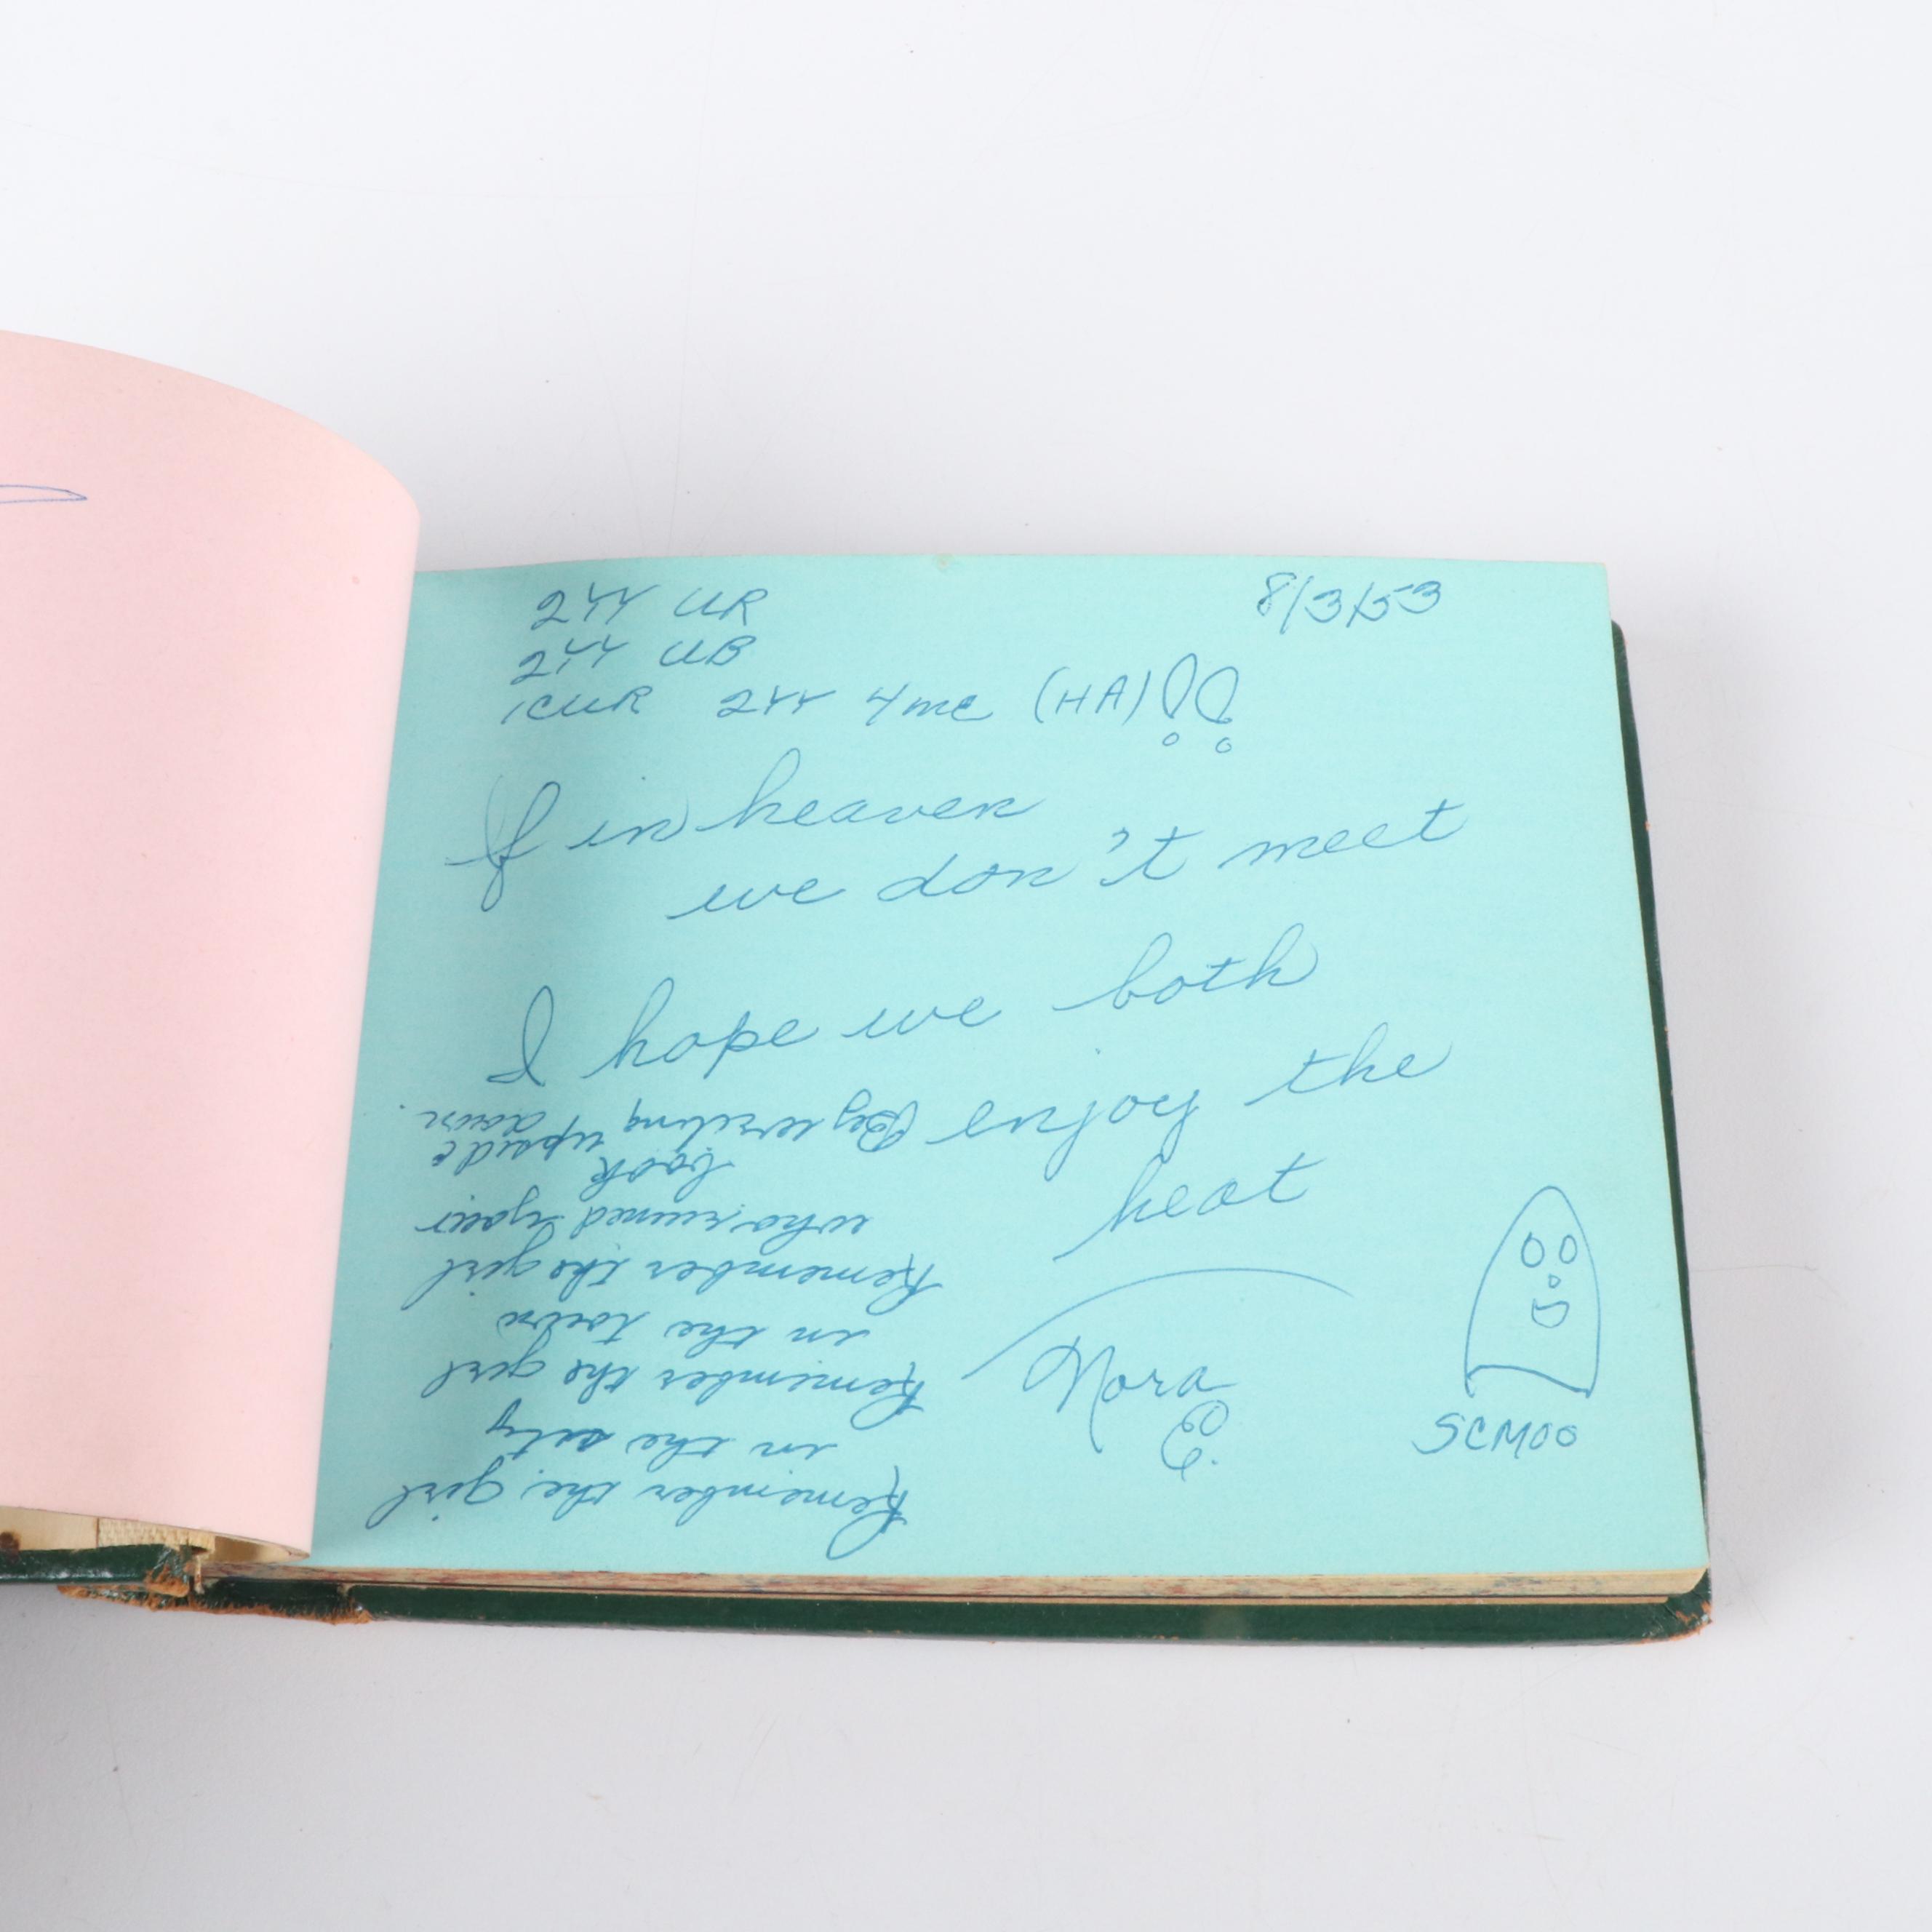 2YY UR
8/3/53
2YY UB
ICUR 2YY 4 me (HA)!!
If in heaven
we don't meet
I hope we both
enjoy the
heat
Nora
E.
SCMOO
Remember the girl
in the city
Remember the girl
in the town
Remember the girl
who ruined your
book
By writing upside
down.